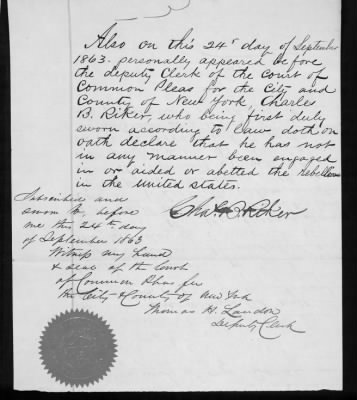 Also on this 24th day of September
1863 personally appeared before
the deputy Clerk of the court of
Common Pleas for the City and
County of New York, Charles
B. Riker, who being first duly
sworn according to law doth on
oath declare that he has not
in any manner been engaged
in or aided or abetted the Rebellion
in the united states.
Chas. B. Riker
Subscribed and
sworn to, before
me this 24th day
of September 1863
Witness my hand
& seal of the Court
of Common Pleas for
the City & County of New York
Thomas H. Landon
Deputy Clerk